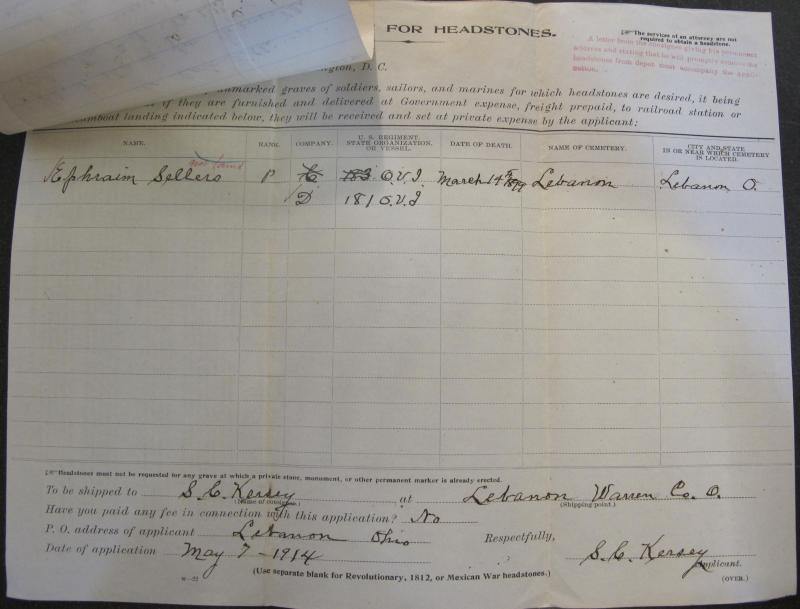 FOR HEADSTONES.
☞The services of an attorney are not
required to obtain a headstone.
A letter from the consignee giving his permanent
address and stating that he will promptly remove the
headstones from depot must accompany the appli-
cation.
D. C.
unmarked graves of soldiers, sailors, and marines for which headstones are desired, it being
if they are furnished and delivered at Government expense, freight prepaid, to railroad station or
landing indicated below, they will be received and set at private expense by the applicant:
NAME. RANK. COMPANY. U. S. REGIMENT, STATE ORGANIZATION, OR VESSEL. DATE OF DEATH. NAME OF CEMETERY. CITY AND STATE IN OR NEAR WHICH CEMETERY IS LOCATED.
Ephraim Sellers P C 183 O.V.I. March 14th 1899 Lebanon Lebanon O.
D 181 O.V.I
☞Headstones must not be requested for any grave at which a private stone, monument, or other permanent marker is already erected.
To be shipped to S. C. Kersey at Lebanon Warren Co. O.
(Name of consignee.) (Shipping point.)
Have you paid any fee in connection with this application? No
P. O. address of applicant Lebanon Ohio Respectfully,
Date of application May 7 - 1914 S. C. Kersey
Applicant.
(Use separate blank for Revolutionary, 1812, or Mexican War headstones.) (OVER.)